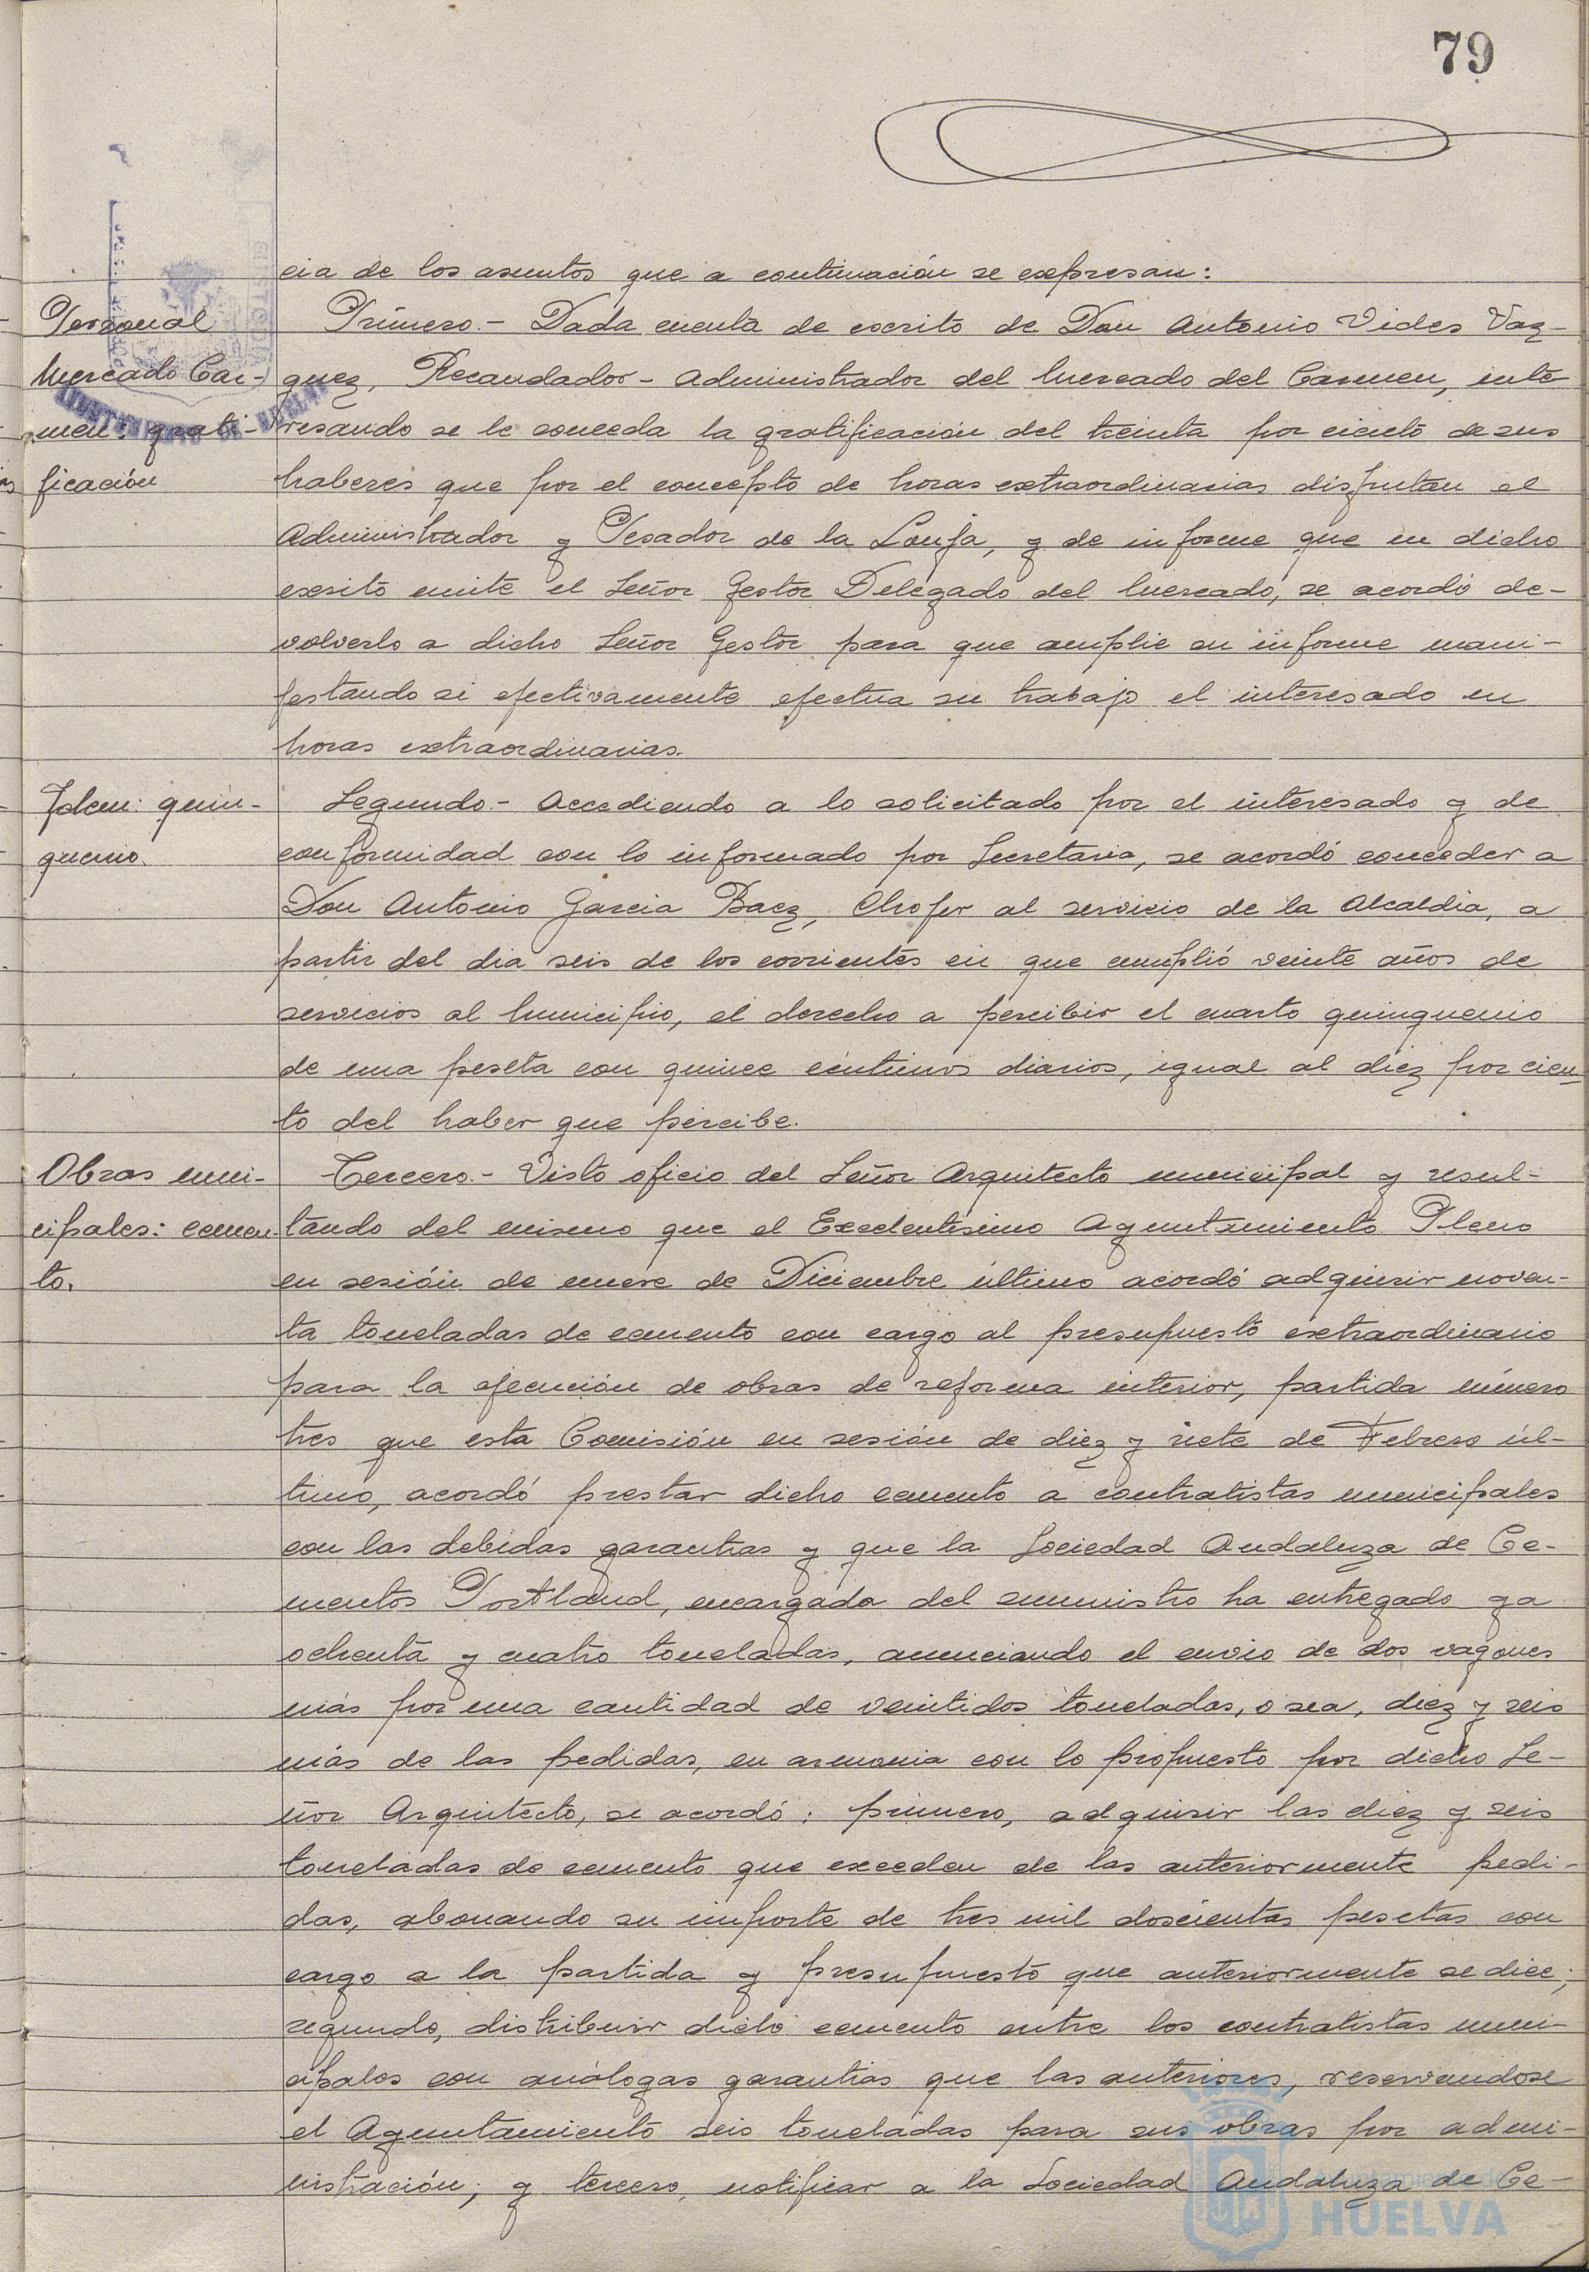 79
cia de los asuntos que a continuación se expresan:
Personal
Mercado Car-
men: grati-
ficación
Primero.- Dada cuenta de escrito de Don Antonio Vides Vaz-
quez, Recaudador-Administrador del Mercado del Carmen, inte
resando se le conceda la gratificación del treinta por ciento de sus
haberes que por el concepto de horas extraordinarias disfrutan el
Administrador y Pesador de la Lonja, y de informe que en dicho
escrito emite el Señor Gestor Delegado del Mercado, se acordó de-
volverlo a dicho Señor Gestor para que amplie su informe mani-
festando si efectivamente efectua su trabajo el interesado en
horas extraordinarias.
Idem: quin-
quenio.
Segundo.- Accediendo a lo solicitado por el interesado y de
conformidad con lo informado por Secretaria, se acordó conceder a
Don Antonio Garcia Baez, Chofer al servicio de la Alcaldia, a
partir del dia seis de los corrientes en que cumplió veinte años de
servicios al Municipio, el derecho a percibir el cuarto quinquenio
de una peseta con quince céntimos diarios, igual al diez por cien
to del haber que percibe.
Obras muni-
cipales: cemen-
to.
Tercero.- Visto oficio del Señor Arquitecto municipal y resul-
tando del mismo que el Excelentisimo Ayuntamiento Pleno
en sesión de nueve de Diciembre último acordó adquirir noven-
ta toneladas de cemento con cargo al presupuesto extraordinario
para la ejecución de obras de reforma interior, partida número
tres que esta Comisión en sesión de diez y siete de Febrero úl-
timo, acordó prestar dicho cemento a contratistas municipales
con las debidas garantias y que la Sociedad Andaluza de Ce-
mentos Portland, encargada del suministro ha entregado ya
ochenta y cuatro toneladas, anunciando el envio de dos vagones
más por una cantidad de veintidos toneladas, o sea, diez y seis
más de las pedidas, en armonia con lo propuesto por dicho Se-
ñor Arquitecto, se acordó: primero, adquirir las diez y seis
toneladas de cemento que exceden de las anteriormente pedi-
das, abonando su importe de tres mil doscientas pesetas con
cargo a la partida y presupuesto que anteriormente se dice;
segundo, distribuir dicho cemento entre los contratistas muni-
cipales con análogas garantias que las anteriores, reservandose
el Ayuntamiento seis toneladas para sus obras por admi-
nistración; y tercero, notificar a la Sociedad Andaluza de Ce-
Ayuntamiento de
HUELVA